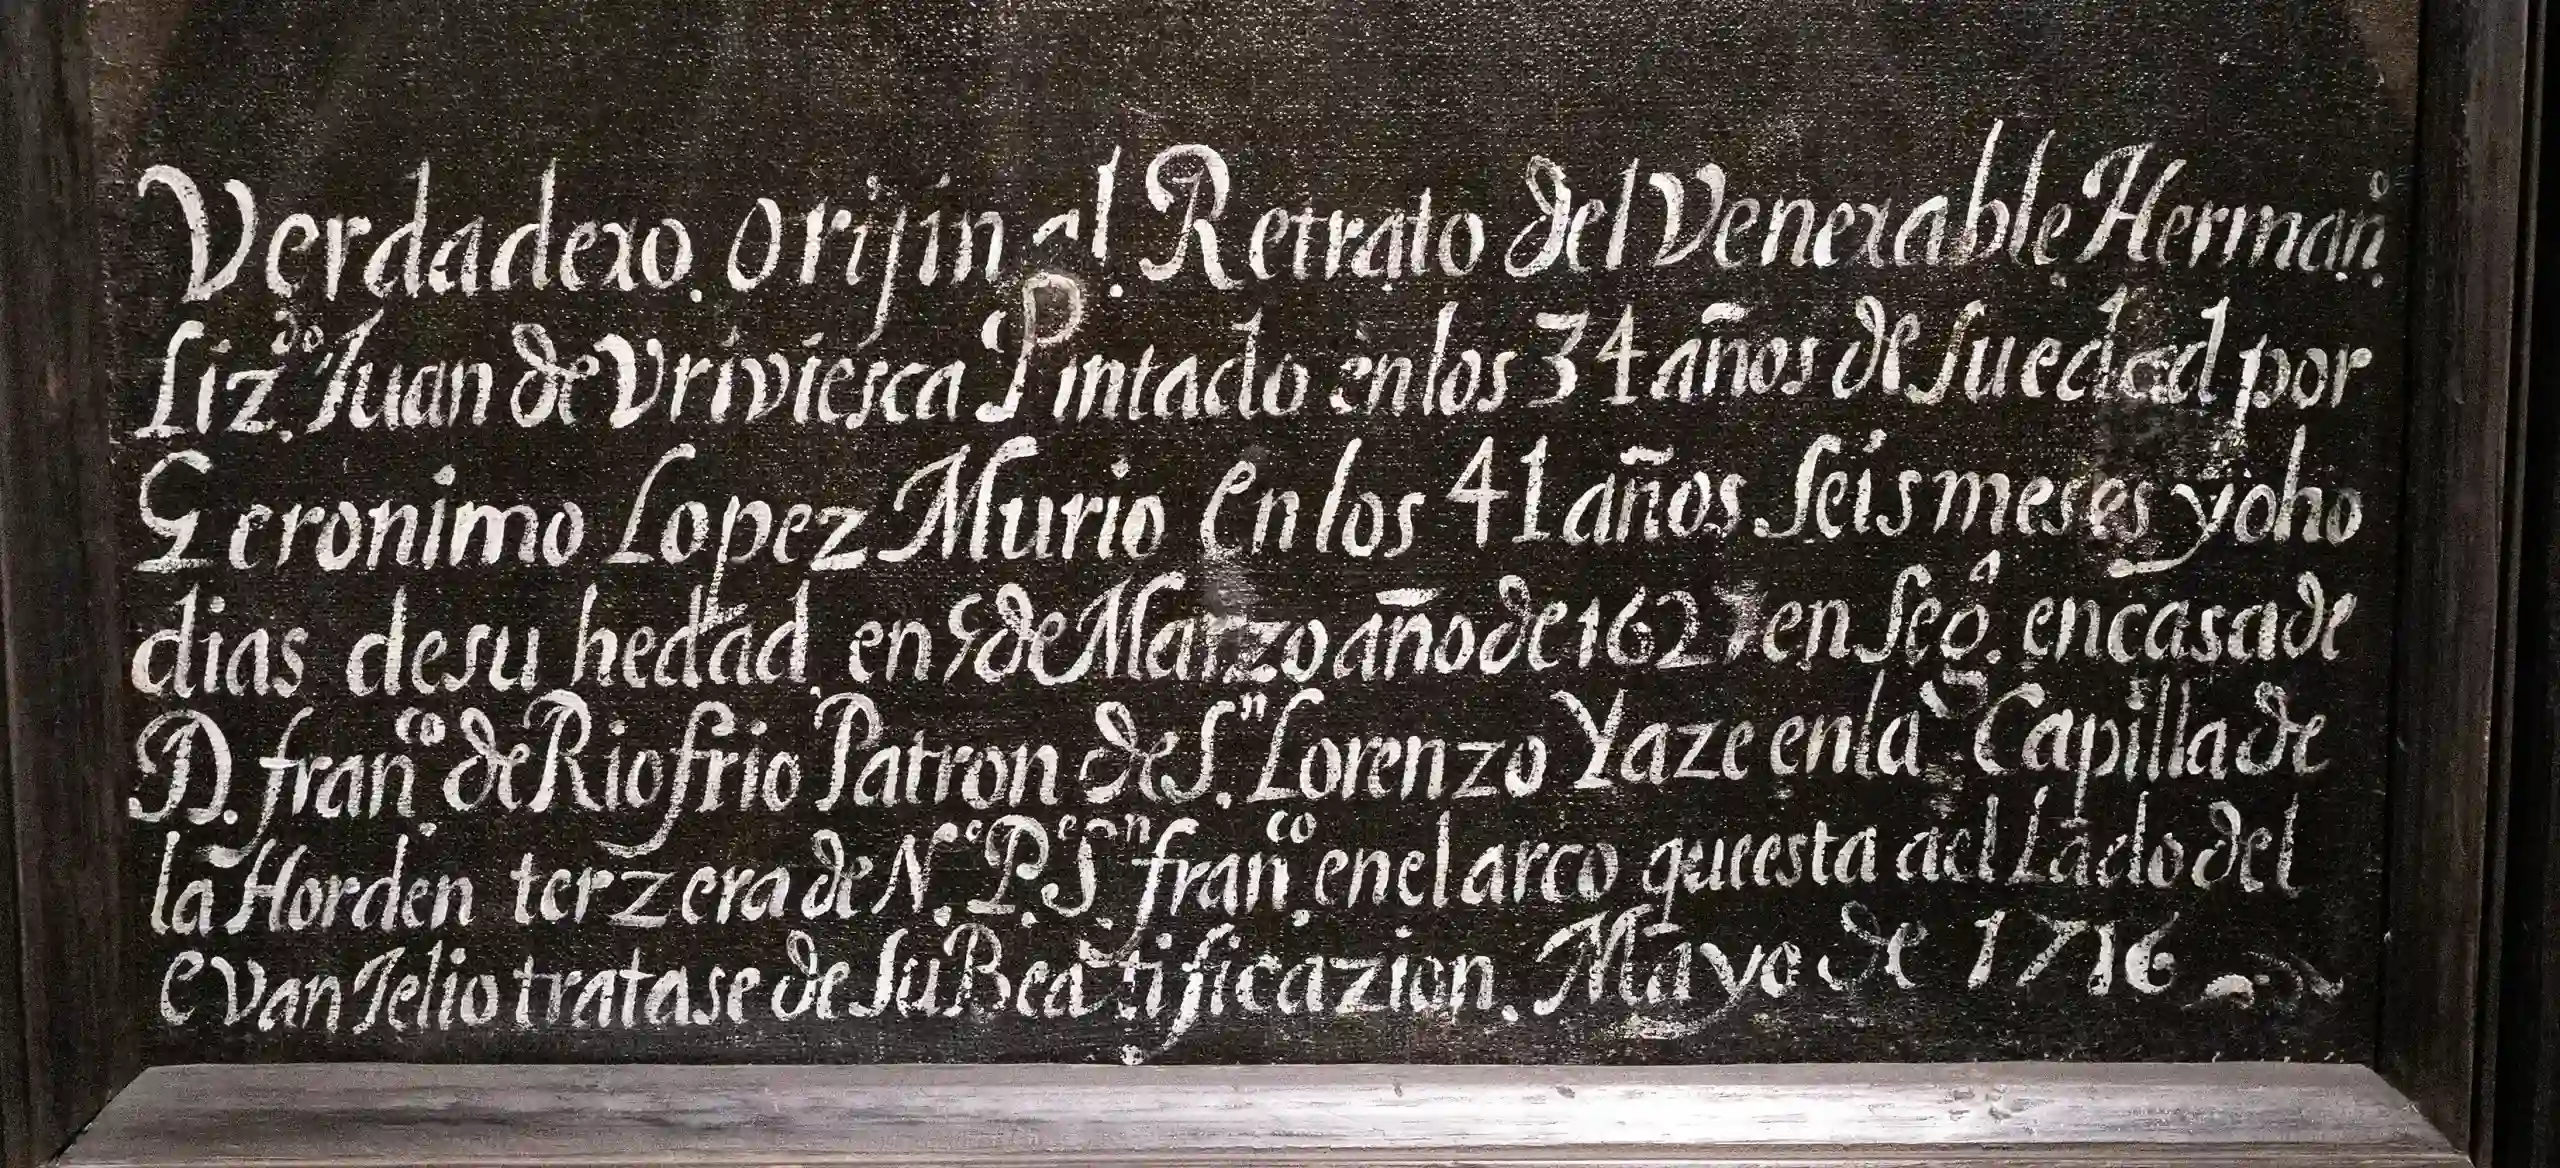 Verdadero. orijinal. Retrato del Venerable Hermañ.º
Liz.do Juan de Vriviesca Pintado en los 34 años de su edad por
Geronimo Lopez Murio en los 41 años. seis meses y oho
dias de su hedad. en 5 de Marzo año de 1627 en Sego.ª en casa de
D. franco de Riofrio Patron de S.n Lorenzo Yaze en la Capilla de
la Horden terzera de N.e P.e S.n fran.co en el arco que esta ael Lado del
evanJelio tratase de su Beatificazion. Mayo de 1716